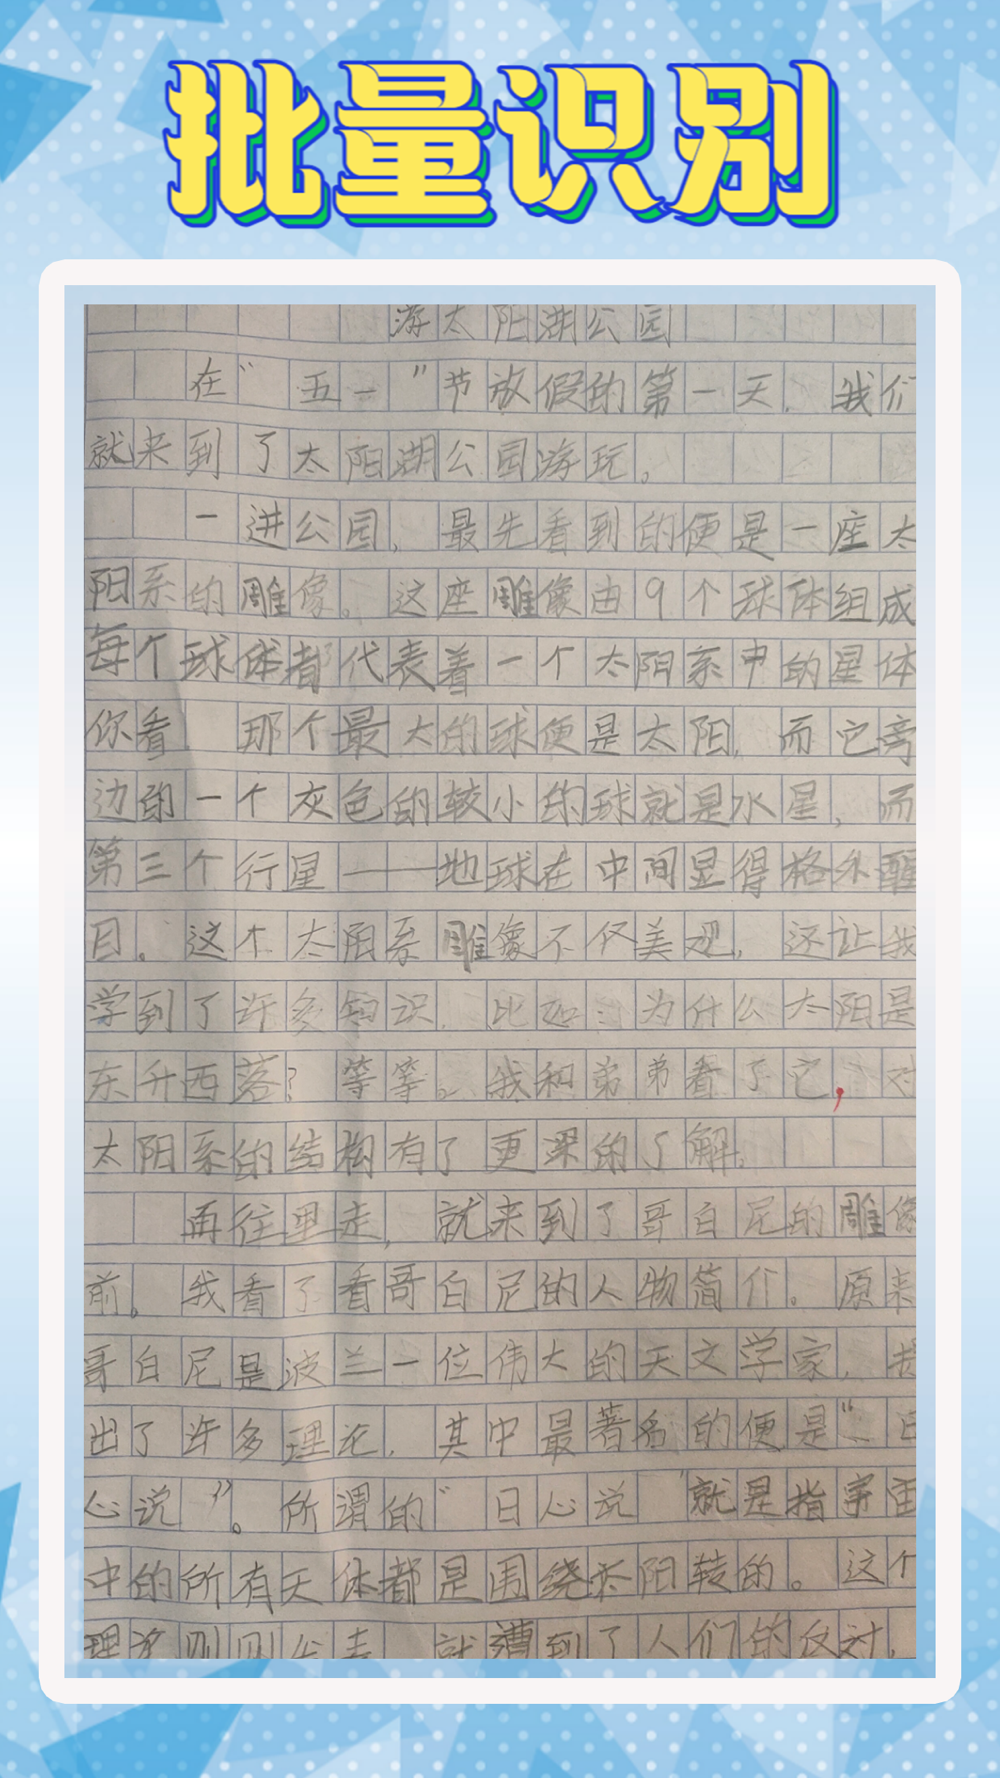 批量识别
游太阳湖公园
在“五一”节放假的第一天，我们
就来到了太阳湖公园游玩。
一进公园，最先看到的便是一座太
阳系的雕像。这座雕像由9个球体组成
每个球体都代表着一个太阳系中的星体
你看 那个最大的球便是太阳，而它旁
边的一个灰色的较小的球就是水星，而
第三个行星——地球在中间显得格外醒
目。这个太阳系雕像不仅美观，还让我
学到了许多知识，比如：为什么太阳是
东升西落？等等。我和弟弟看了它，对
太阳系的结构有了更深的了解。
再往里走，就来到了哥白尼的雕像
前。我看了看哥白尼的人物简介。原来
哥白尼是波兰一位伟大的天文学家，提
出了许多理论，其中最著名的便是“日
心说”。所谓的“日心说 就是指宇宙
中的所有天体都是围绕太阳转的。这个
理论刚刚公表 就遭到了人们的反对，